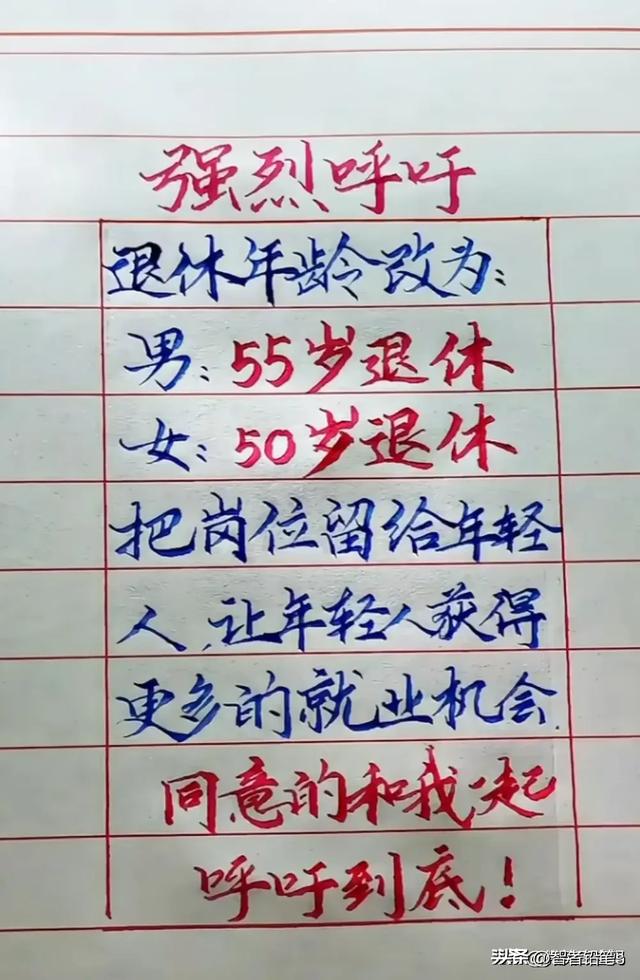 强烈呼吁
退休年龄改为:
男:55岁退休
女:50岁退休
把岗位留给年轻
人,让年轻人获得
更多的就业机会.
同意的和我一起
呼吁到底!
头条@智者铅笔3